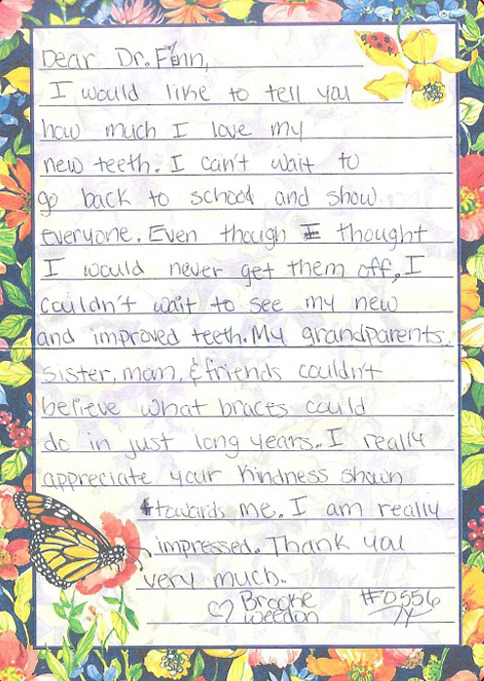 Dear Dr. Finn,
I would like to tell you
how much I love my
new teeth. I can't wait to
go back to school and show
everyone. Even though I thought
I would never get them off, I
couldn't wait to see my new
and improved teeth. My grandparents,
sister, mom, & friends couldn't
believe what braces could
do in just long years. I really
appreciate your kindness shown
towards me. I am really
impressed. Thank you
very much.
♡ Brooke #0556
Weedon